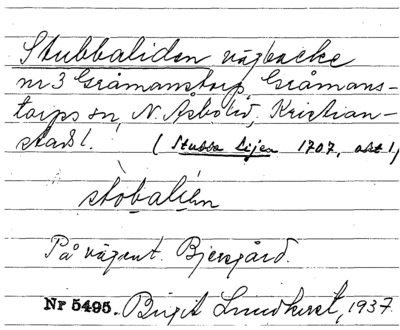 Stubbaliden vägbacke
nr 3 Gråmanstorp, Gråmans-
torps sn, N. Åsbo hd, Kristian-
stads l. (Stubba Lijen 1707, akt 1)
stòbalíen
På vägent. Bjersgård.
Nr 5495. Birgit Lundkvist, 1937.